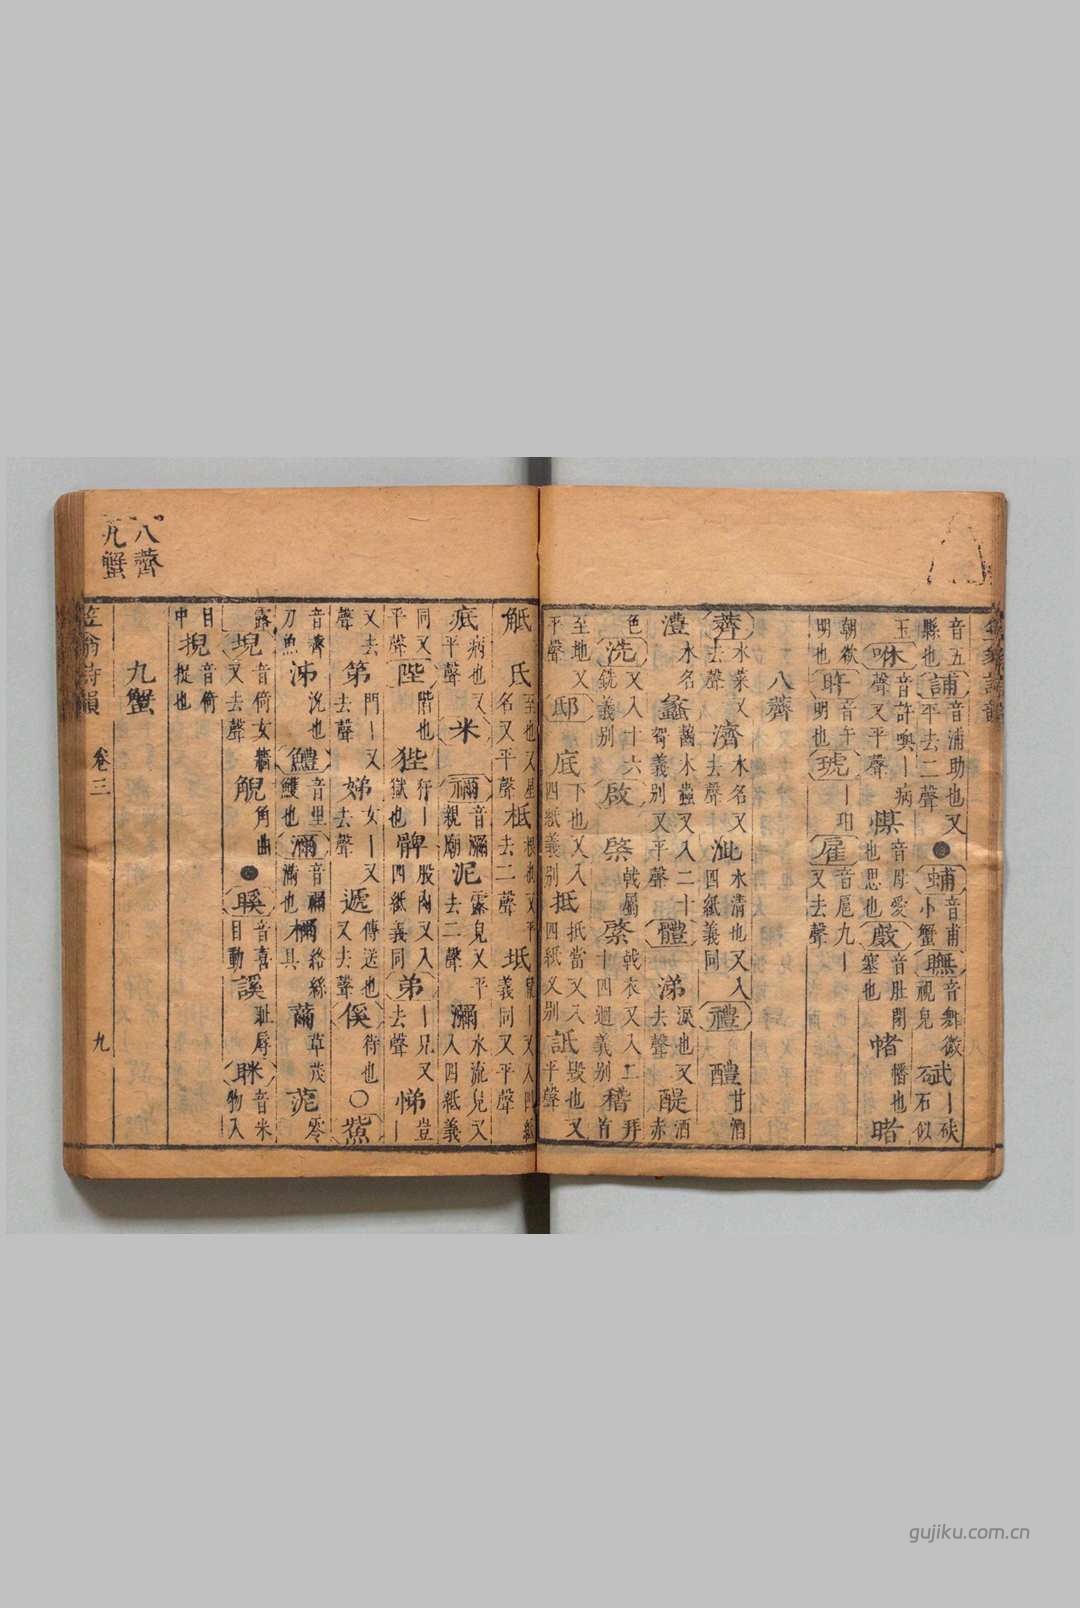 音五音浦助也又音甫音舞微武丨砆
縣也誧平去二聲●蜅小蟹瞴視皃石石似
玉咻音許噢丨病音毋愛音肚閉幡也
聲又平聲也思也塞也帾睹
朝欲旿音午丨玥音扈九丨
明也明也琥雇又去聲
八薺
薺水菜又水名又水清也又入甘酒
去聲濟去聲泚四紙義同禮醴
澧水名蠡齧木蟲又入二十體涕淚也又醍酒
鴷義別又平聲去聲赤
色洗又入十六啟棨戟屬綮戟衣又入二稽拜
銑義別十四迥義別首
至地又邸底下也又入抵抵當又入詆毀也又
平聲四紙義別四紙义別平聲
觝氐至也又星柢根也又平坻
名又平聲去二聲義同又平聲
疷病也又米禰音瀰泥露皃又平瀰水流皃又
平聲親廟去二聲入四紙義
同又陛階也狴行丨髀股內又入弟丨兄又悌豈
平聲獄也四紙義同去聲丨
又去第門丨又娣女丨又遞傳送也徯待也○鮆
聲去聲去聲又去聲
音薺泲沇也鱧音里濔音禰檷絡絲薾草茂苨
刀魚鱯也滿也具
露堄音倚女牆觬角曲●䁎音喜謑恥辱眯音米
又去聲目動物入
目掜音倚
中捉也
九蟹
笠翁詩韻
卷三
九
八薺
九蟹
gujiku.com.cn